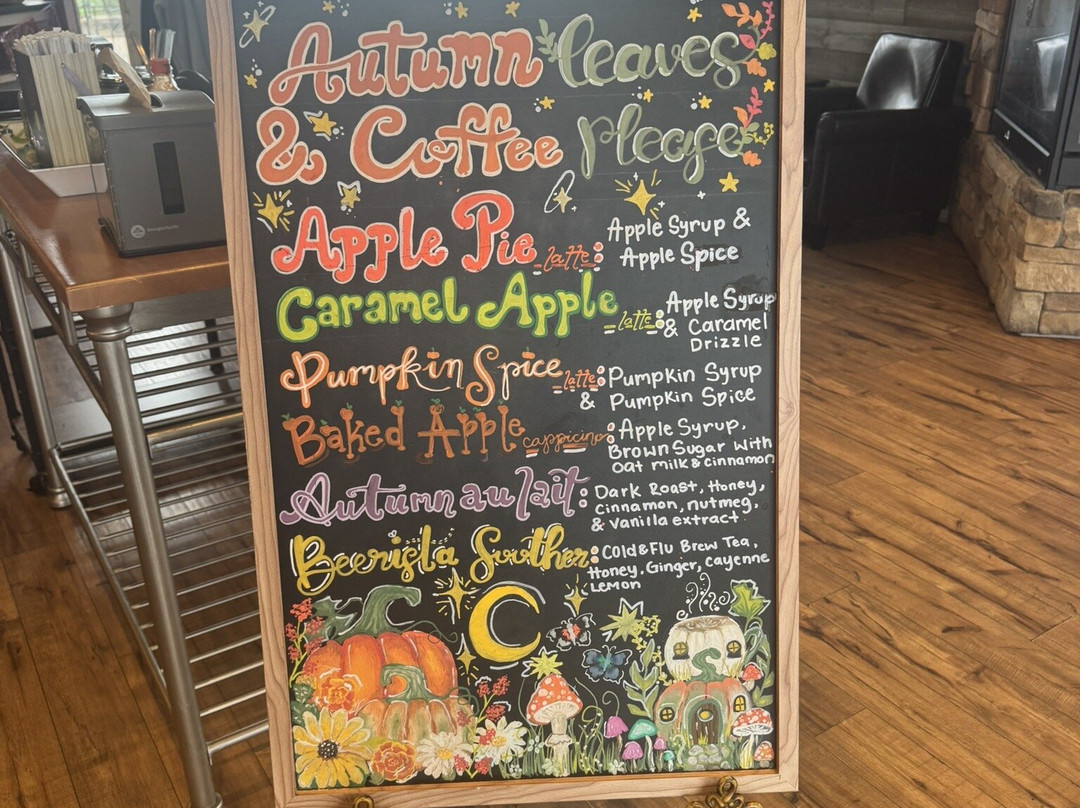 Autumn leaves
& Coffee please
Apple Pie latte: Apple Syrup &
Apple Spice
Caramel Apple latte: Apple Syrup
& Caramel
Drizzle
Pumpkin Spice latte: Pumpkin Syrup
& Pumpkin Spice
Baked Apple cappicino: Apple Syrup,
Brown Sugar with
oat milk & cinnamon
Autumn au lait: Dark Roast, Honey,
cinnamon, nutmeg,
& vanilla extract
Beerista Soother: Cold & Flu Brew Tea,
Honey, Ginger, cayenne
Lemon